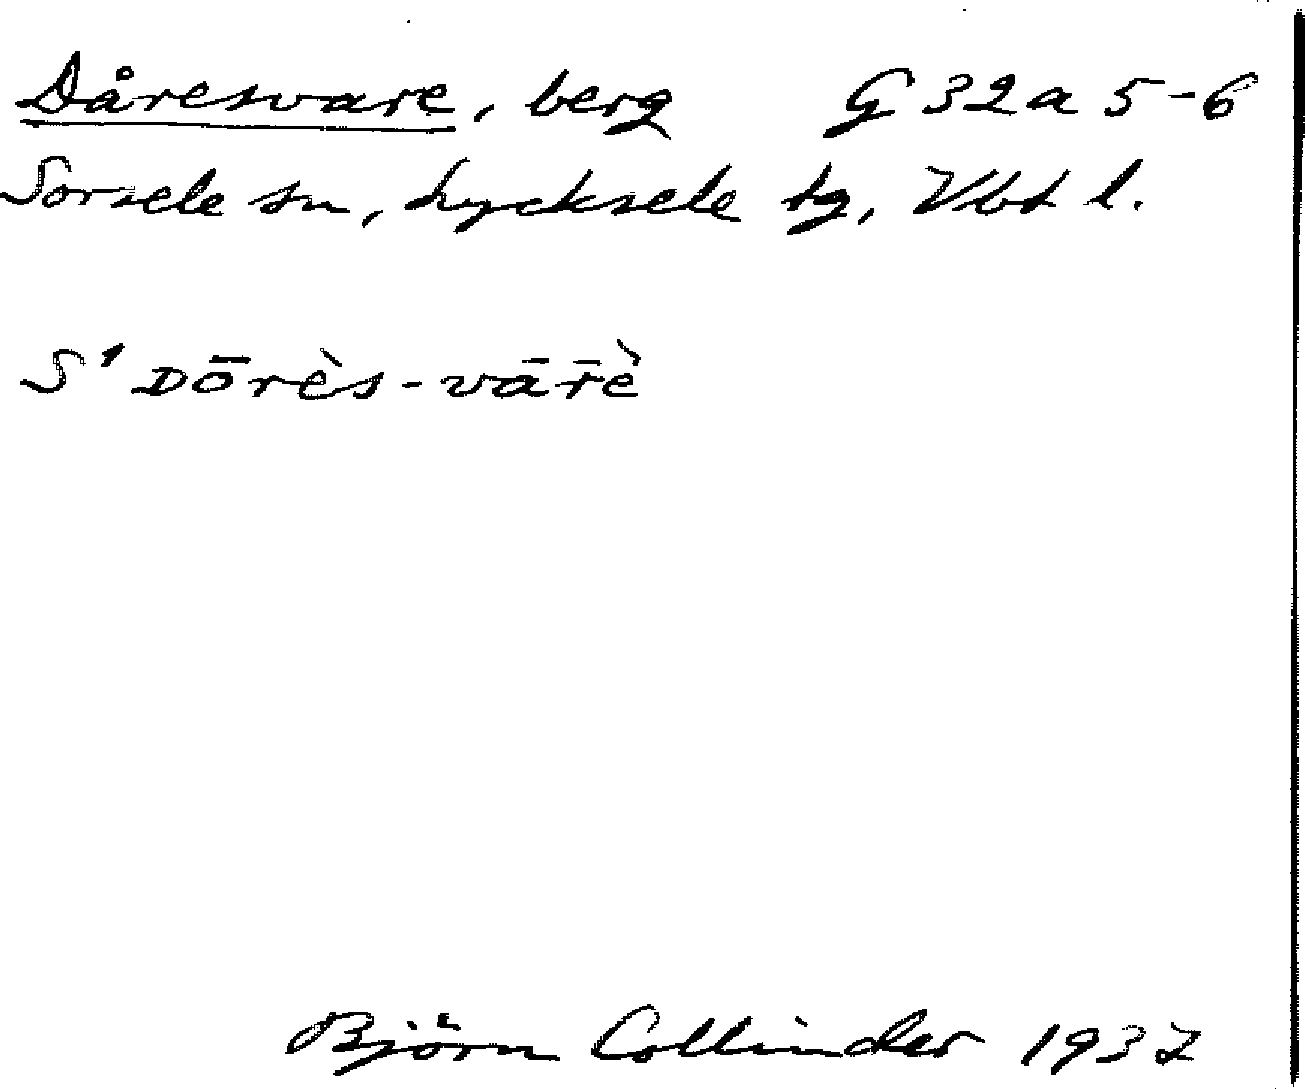 Dåresvare, berg G 32 a 5-6
Sorsele sn, Lycksele tg, Vbt l.
S' ᴅōrès-vār̄è
Björn Collinder 1937